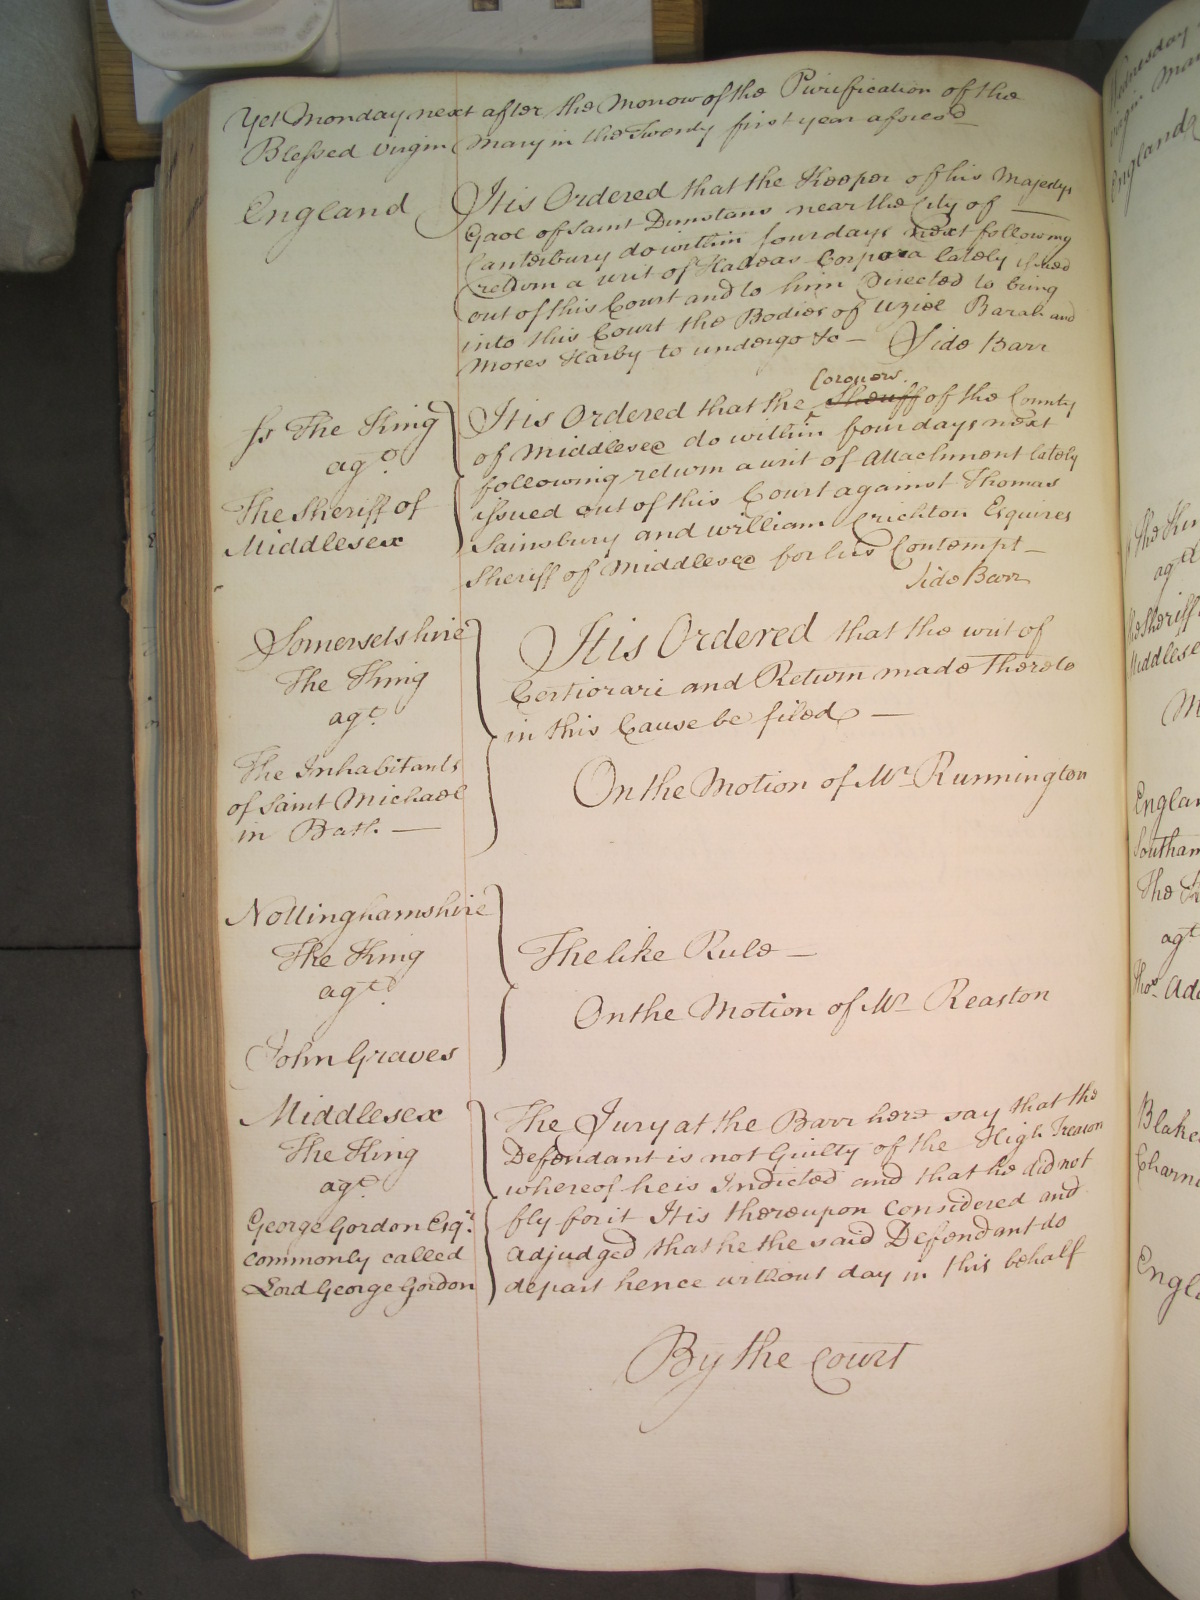 Yet Monday next after the Morrow of the Purification of the
Blessed Virgin Mary in the Twenty first year afores.d
England
It is Ordered that the Keeper of his Majestys
Gaol of Saint Dunstans near the City of
Canterbury do within four days next following
return a writ of Habeas Corpora lately issued
out of this Court and to him Directed to bring
into this Court the Bodies of Uziel Barah and
Moses Harby to undergo &c — Side Barr
The King
ag.t
The Sheriff of
Middlesex
Coroners
It is Ordered that the Sheriff of the County
of Middlesex do within four days next
following return a writ of Attachment lately
issued out of this Court against Thomas
Sainsbury and William Crichton Esquires
Sheriff of Middlesex for his Contempt —
Side Barr
Somersetshire
The King
ag.t
The Inhabitants
of Saint Michael
in Bath —
It is Ordered that the writ of
Certiorari and Return made thereto
in this Cause be filed —
On the Motion of Mr Runnington
Nottinghamshire
The King
ag.t
John Graves
The like Rule —
On the Motion of Mr Reaston
Middlesex
The King
ag.t
George Gordon Esq.r
commonly called
Lord George Gordon
The Jury at the Barr here say that the
Defendant is not Guilty of the High Treason
whereof he is Indicted and that he did not
fly for it It is thereupon Considered and
adjudged that he the said Defendant do
depart hence without day in this behalf
By the Court
England
The Kin
ag.t
he Sheriff
Middlese
Englan
Southam
The K
ag.t
Tho.s Ada
Blake
Charn
Engl